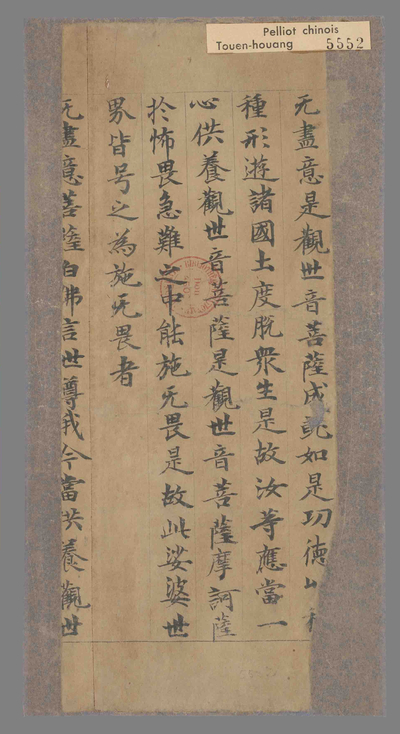 Pelliot chinois
Touen-houang 5552
无盡意是觀世音菩薩成就如是功德
種形遊諸國土度脱衆生是故汝等應當一
心供養觀世音菩薩是觀世音菩薩摩訶薩
扵怖畏急難之中能施无畏是故此娑婆世
界皆号之為施无畏者
无盡意菩薩白佛言世尊我今當供養觀世